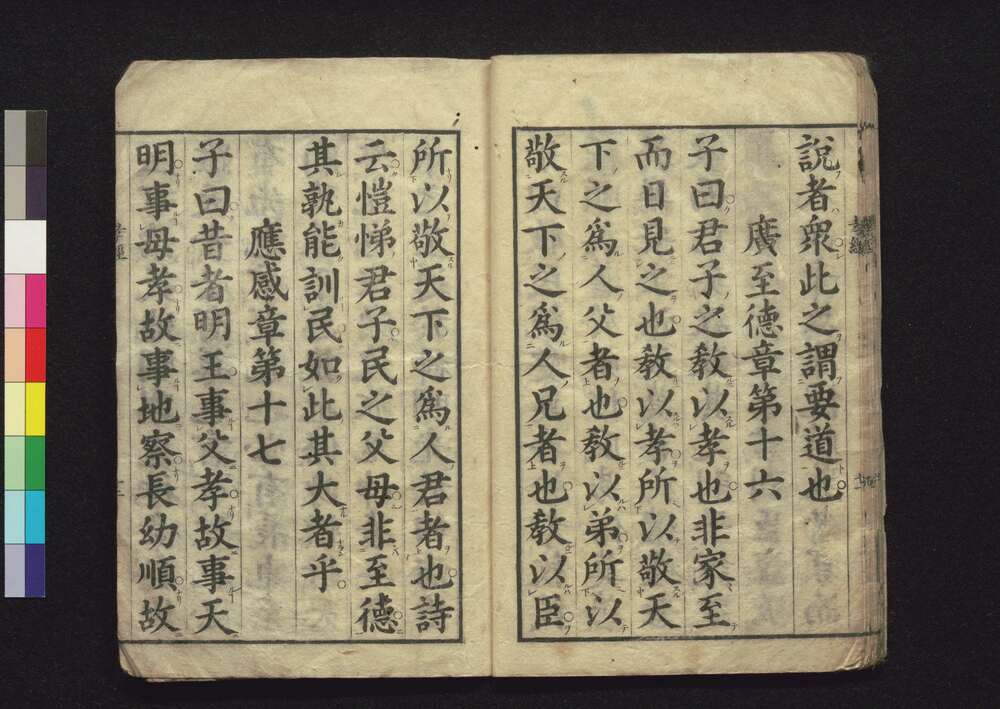 說者衆此之謂要道也
廣至德章第十六
子曰君子之敎以孝也非家至
而日見之也敎以孝所以敬天
下之爲人父者也敎以弟所以
敬天下之爲人兄者也敎以臣
所以敬天下之爲人君者也詩
云愷悌君子民之父母非至德
其孰能訓民如此其大者乎
應感章第十七
子曰昔者明王事父孝故事天
明事母孝故事地察長幼順故